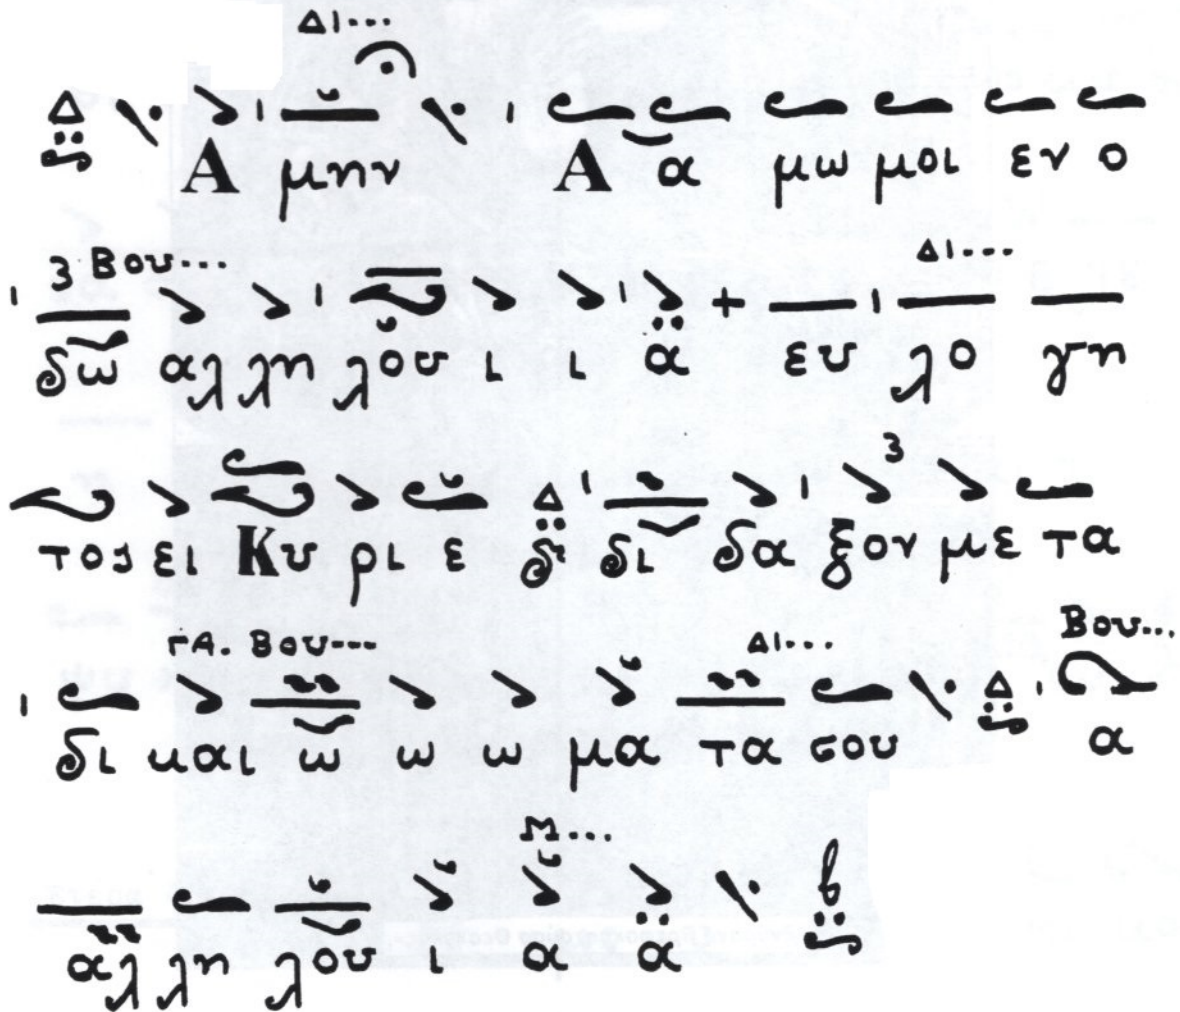 Δι...
Α μην Α α μω μοι εν ο
Βου... Δι...
δω αλ λη λου ι ι α ευ λο γη
τος ει Κυ ρι ε Δ δι δα ξον με τα
ΓΑ. Βου... Δι... Βου...
δι και ω ω ω μα τα σου Δ α
Μ...
αλ λη λου ι α α